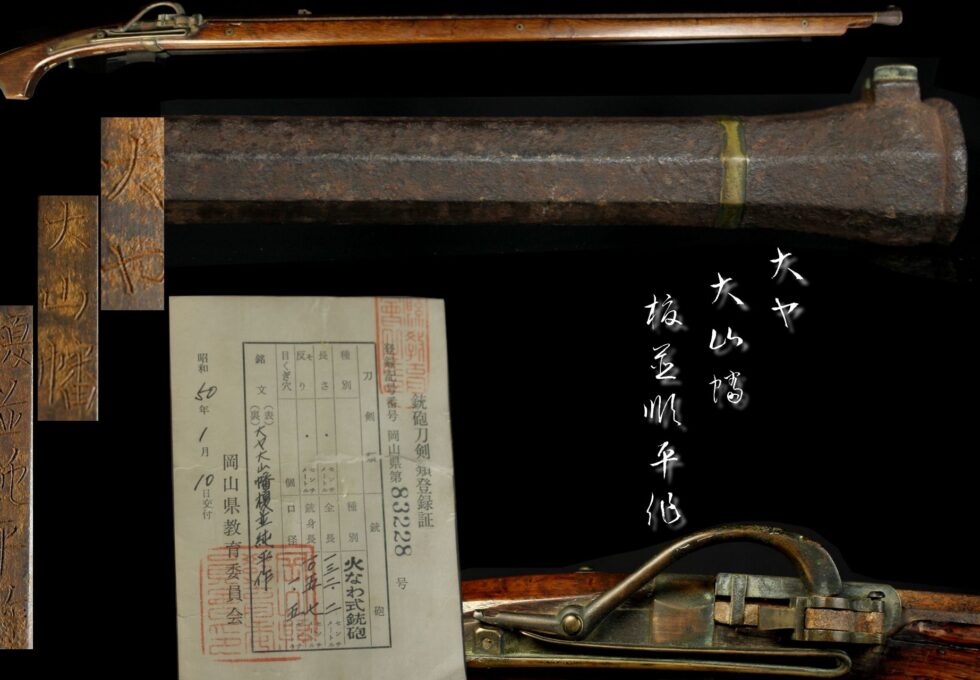 大ヤ
大山幡
大ヤ
大山幡
榎並順平作
登録記号番号 岡山県第83228号
銃砲刀剣類登録証
刀剣類
銃砲
種別
長さ
・
センチメートル
反り
・
センチメートル
目くぎ穴
個
種別
火なわ式銃砲
全長
一三二・二
センチメートル
銃身長
一〇五・七
センチメートル
口径
一・五
銘文
(表)
大ヤ大山幡榎並純平作
(裏)
昭和50年1月10日交付
岡山県教育委員会